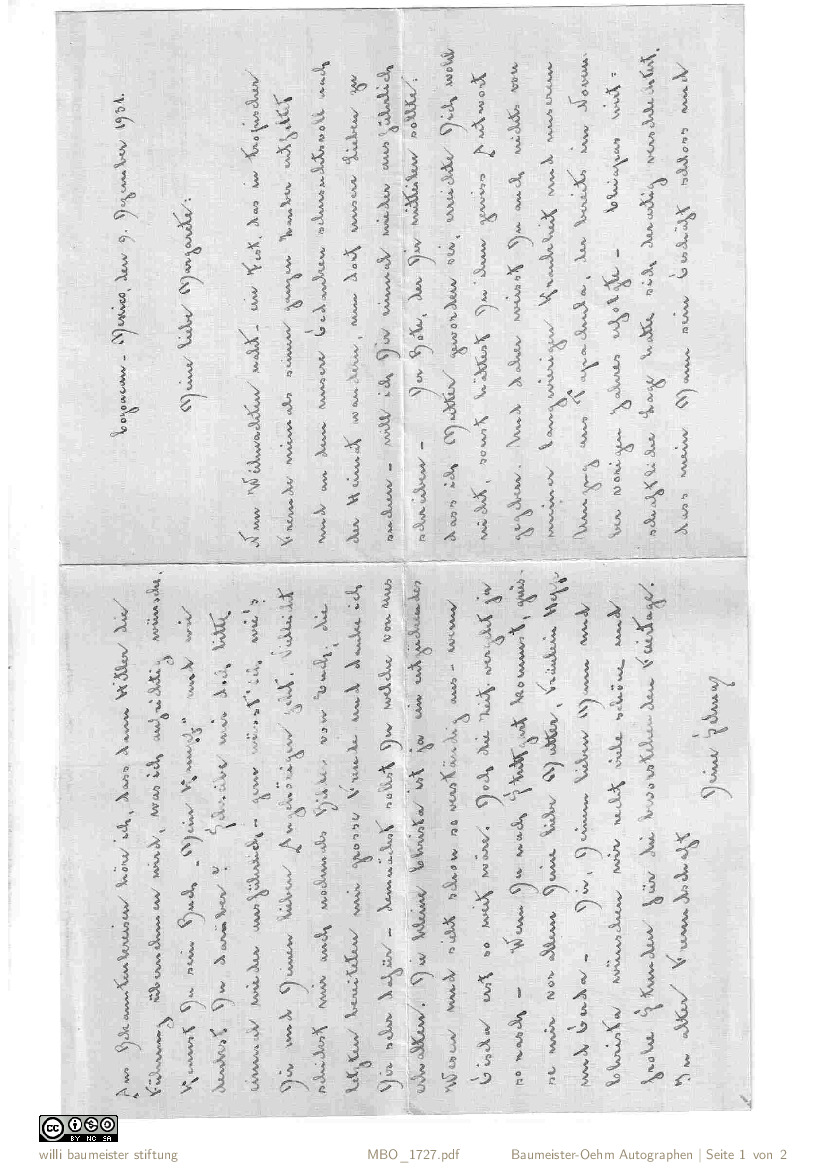 Coyoacan – Mexico, den 9. Dezember 1931.
Meine liebe Margarete:
Nun Weihnachten naht – ein Fest, das in tropischer
Fremde niemals seinen ganzen Zauber entfaltet
und an dem unsere Gedanken sehnsuchtsvoll nach
der Heimat wandern, um dort unsere Lieben zu
suchen – will ich Dir einmal wieder ausführlich
schreiben – Der Bote, der Dir mitteilen sollte:
dass ich Mutter geworden sei, erreichte Dich wohl
nicht, sonst hättest Du ihm gewiss Antwort
gegeben. Und daher weisst Du auch nichts von
meiner langwierigen Krankheit und unserem
Umzug aus Tapachula, der bereits im Novem-
ber vorigen Jahres erfolgte – Chiapas wirt=
schaftliche Lage hatte sich derartig verschlechtert,
dass mein Mann sein Geschäft schloss und
Aus Bekanntenkreisen höre ich, dass dann Hitler die
Führung übernehmen wird, was ich aufrichtig wünsche.
Kennst Du sein Buch „Mein Kampf" und wie
denkst Du darüber? Schreibe mir doch bitte
einmal wieder ausführlich – gern wüsst ich, wie's
Dir und Deinen lieben Angehörigen geht. Vielleicht
schickst mir auch nochmals Bilder von Euch; die
letzten bereiteten mir grosse Freude und danke ich
Dir sehr dafür – demnächst sollst Du welche von uns
erhalten. Die kleine Christa ist ja ein entzückendes
Wesen und sieht schon so verständig aus – wenn
Gisela erst so weit wäre. Doch die Zeit vergeht ja
so rasch – Wenn Du nach Stuttgart kommst, grüs-
se mir vor allem Deine liebe Mutter, Fräulein Hepp
und Gerda – Dir, Deinem lieben Mann und
Christa wünschen wir recht viele schöne und
frohe Stunden für die bevorstehenden Feiertage.
In alter Freundschaft
Deine Helmaz
BY NC SA
willi baumeister stiftung
MBO_1727.pdf
Baumeister-Oehm Autographen | Seite 1 von 2